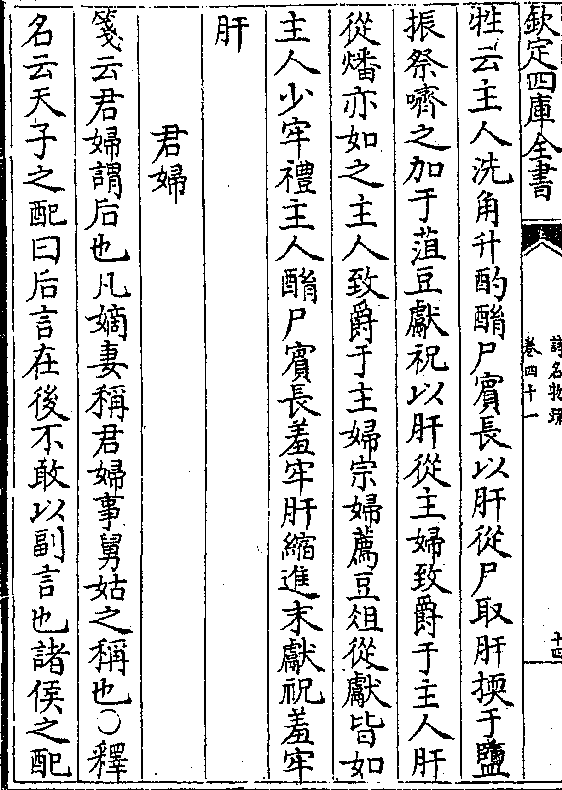 欽定四庫全書
詩名物疏
卷四十一
十四
牲云主人洗角升酌酳尸賓長以肝從尸取肝擩于鹽
振祭嚌之加于菹豆獻祝以肝從主婦致爵于主人肝
從燔亦如之主人致爵于主婦宗婦薦豆俎從獻皆如
主人少牢禮主人酳尸賓長羞牢肝縮進末獻祝羞牢
肝
君婦
箋云君婦謂后也凡嫡妻稱君婦事舅姑之稱也○釋
名云天子之配曰后言在後不敢以副言也諸侯之配